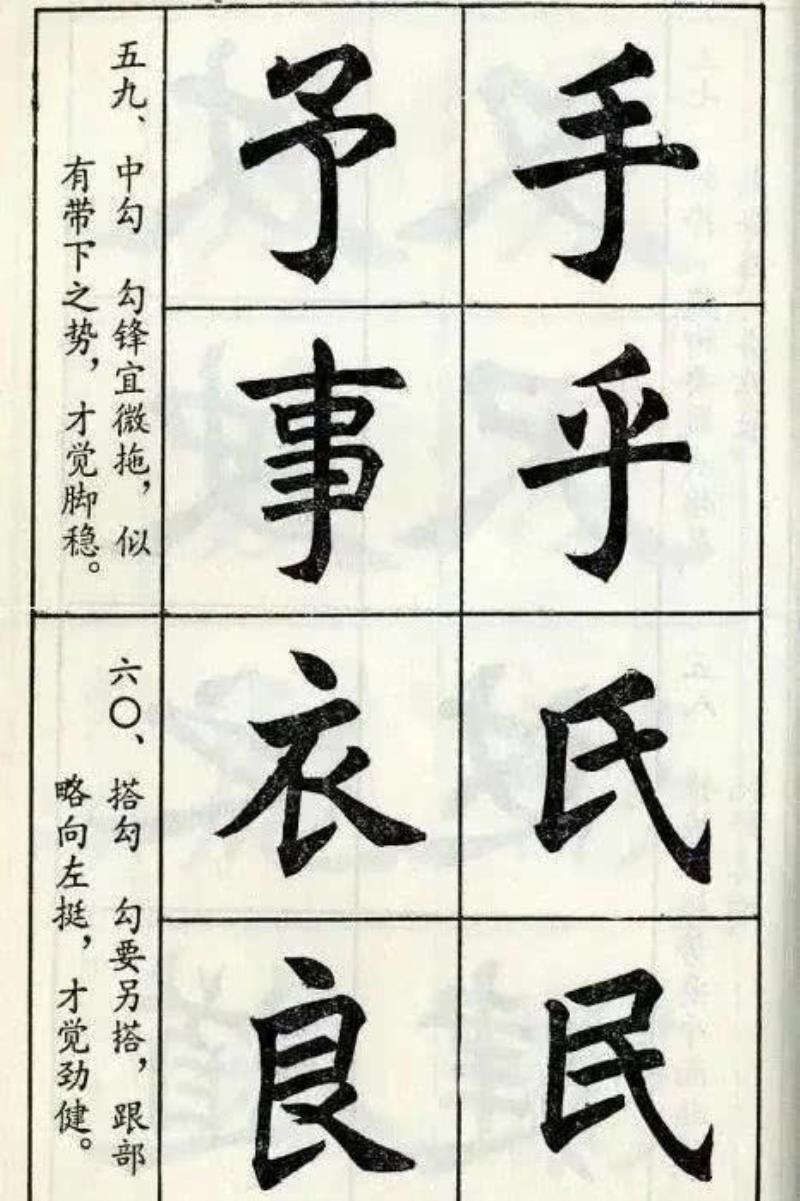 五九、中勾 勾锋宜微拖，似
有带下之势，才觉脚稳。
予手
事乎
六〇、搭勾 勾要另搭，跟部
略向左挺，才觉劲健。
衣氏
良民